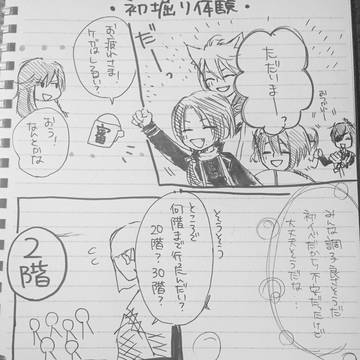 ・初掘り体験・
ただいまー
だーっ
お疲れさま!
ケガはしない?
おう!
なんとかな
みんな調子良さそうだ
初めてだから不安だったけど
大丈夫そうだな…
そうそう
ところで
何階まで行ったんだい?
20階?30階?
2階